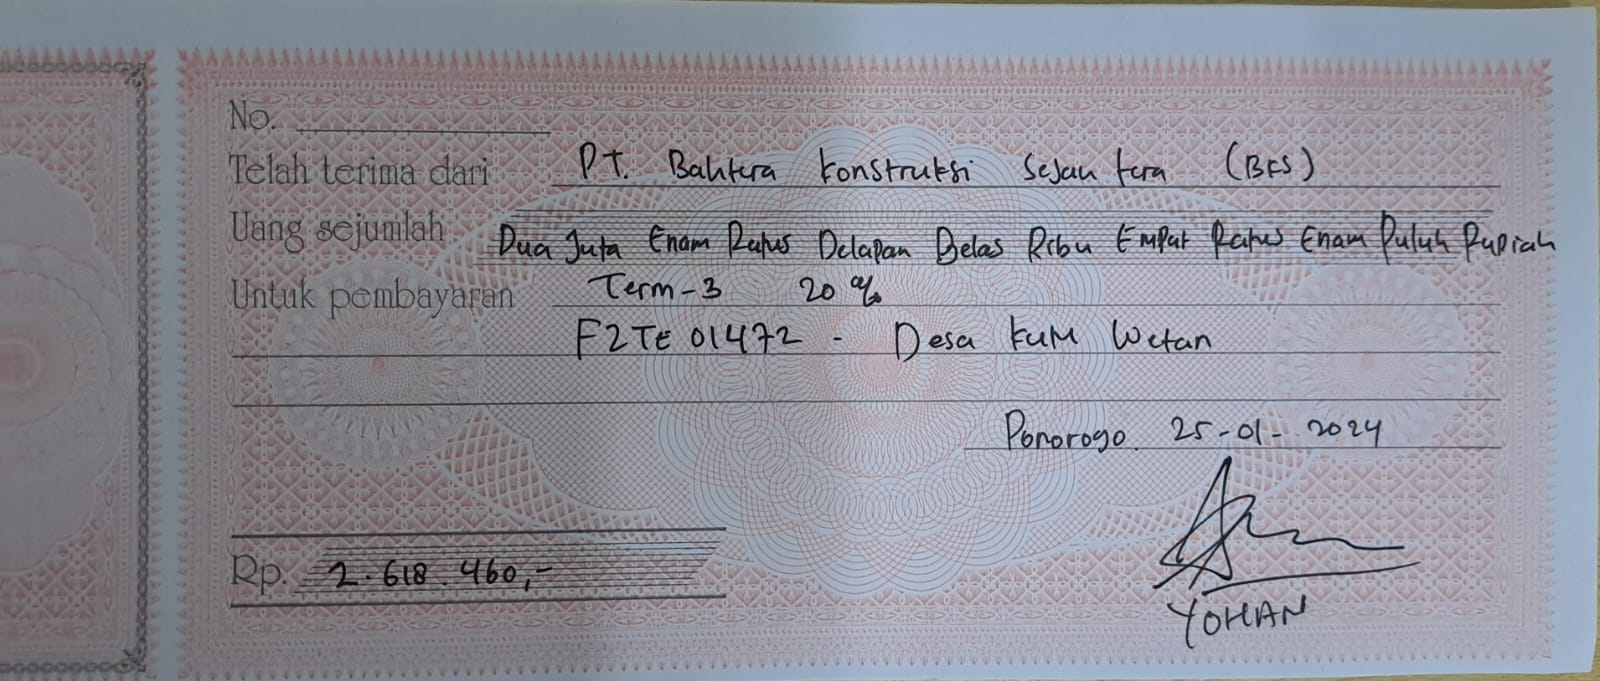 No.
Telah terima dari PT. Bahtera Konstruksi Sejahtera (BKS)
Uang sejumlah Dua Juta Enam Ratus Delapan Belas Ribu Empat Ratus Enam Puluh Rupiah
Untuk pembayaran Term-3 20%
F2TE 01472 - Desa Wetan
Ponorogo 25-01-2024
Rp. 2.618.460,-
YOHAN